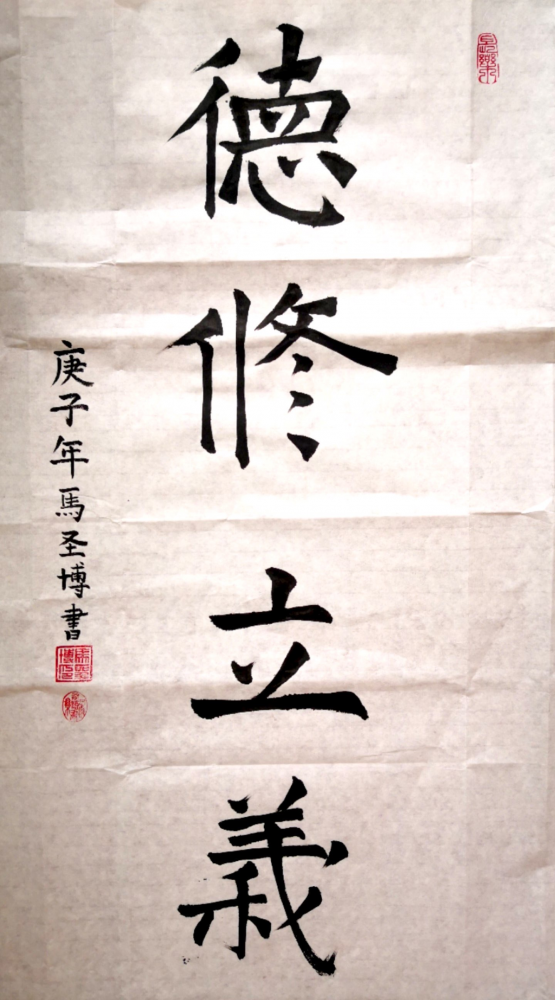 德修立義
庚子年馬圣博書